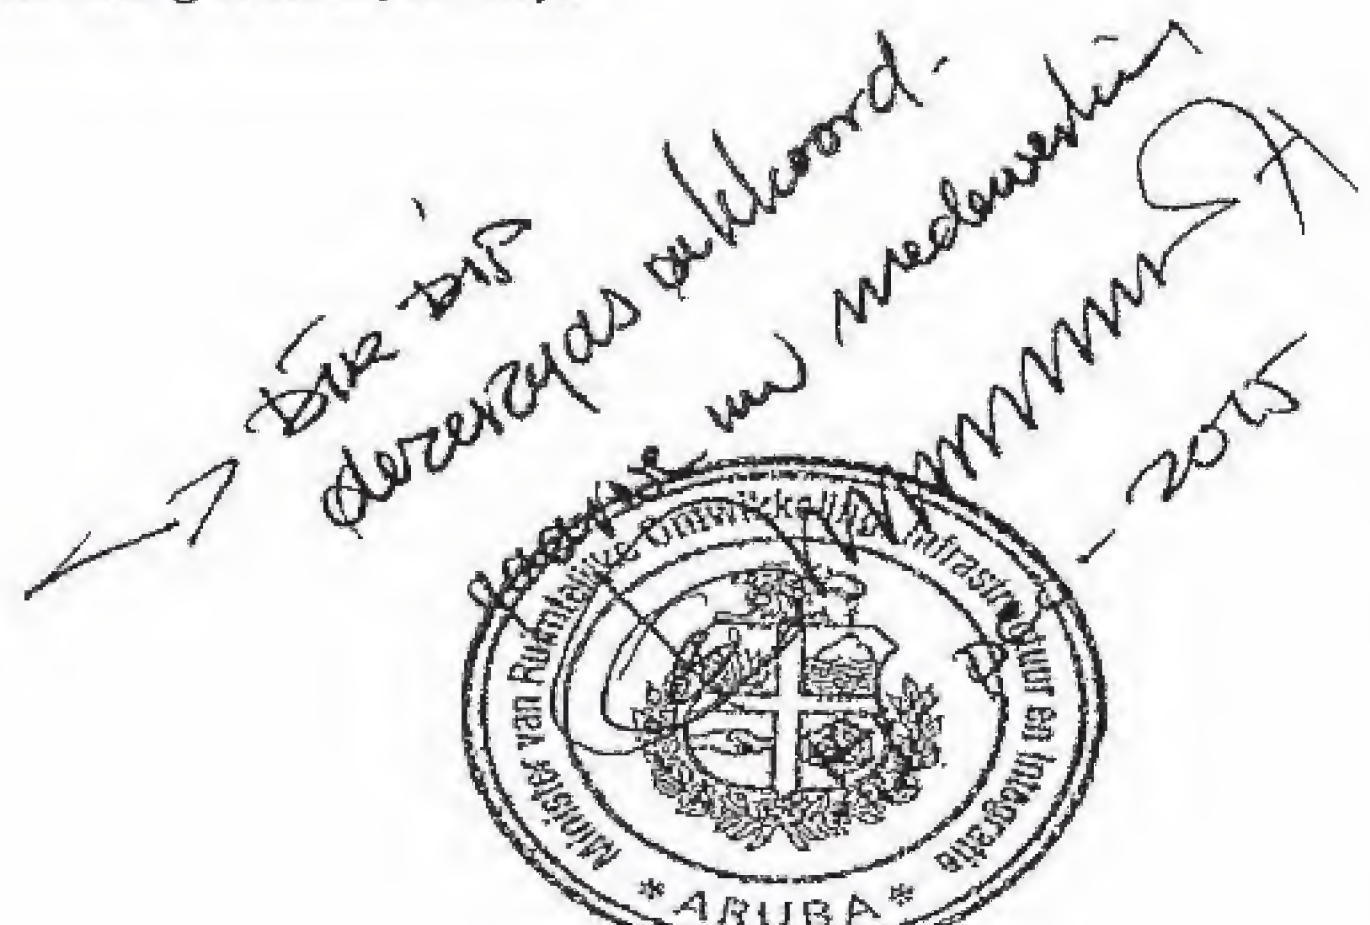 → DIR DIP
derzerzyds akkoord -
uw medewerking
- 2015
Minister van Ruimtelijke Ontwikkeling, Infrastructuur en Integratie
* ARUBA *